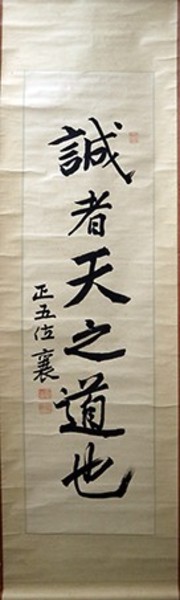 誠者天之道也
正五位襄